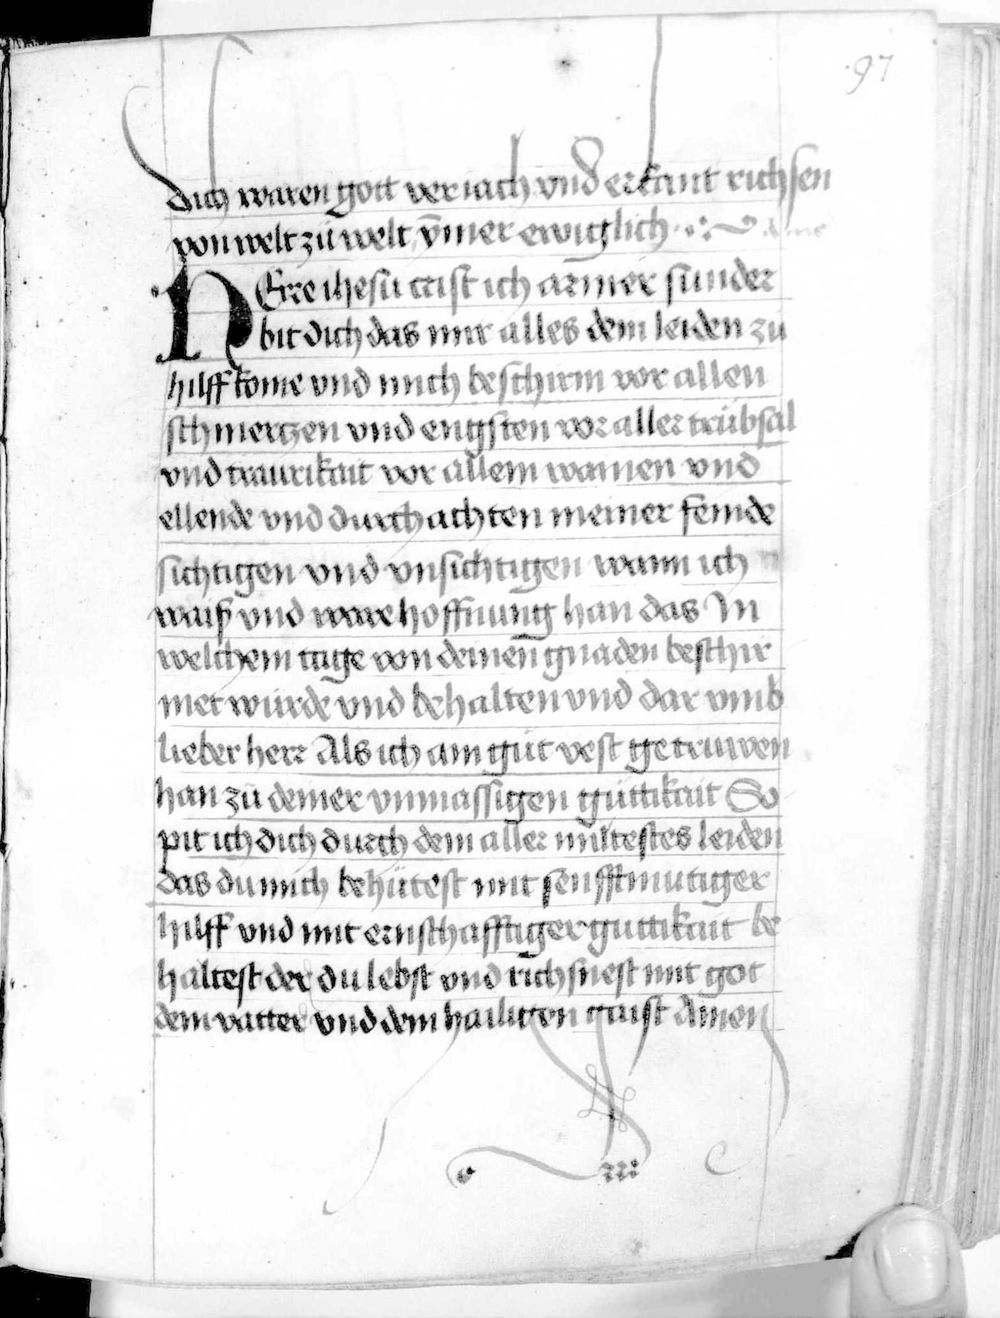 97
dich waren gott veriach vnd erkant richsen
von welt zü welt ȳmer ewiglich
HErre ihesu crist ich armer sunder
bit dich das mir alles dein leiden zü
hilff kome vnd mich beschirm vor allen
schmertzen vnd engsten vor aller trübsal
vnd traurikait vor allem wainen vnd
ellende vnd durchachten meiner feinde
sichtigen vnd vnsichtigen wann ich
waiß vnd ware hoffnung han das In
welchem tage von deinen gnaden beschir
met würde vnd behalten vnd dar vmb
lieber herr Als ich ain güt vest getruwen
han zü deiner vnmassigen güttikait So
pit ich dich durch dein aller miltestes leiden
das du mich behütest mit senfftmutiger
hilff vnd mit ernschafftiger guttikait be
haltest der du lebst vnd richsnest mit got
dem vatter vnd dem hailigen gaist Amen